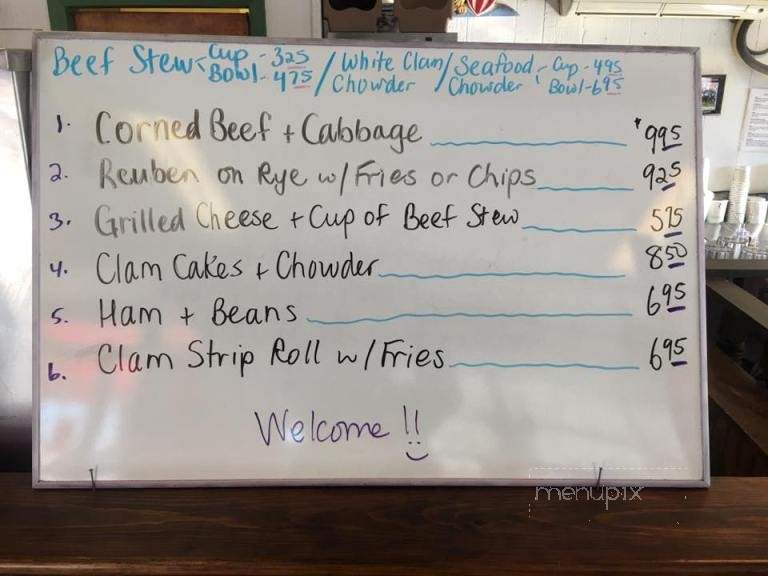 Beef Stew < Cup - 325 / White Clam / Seafood < Cup - 495
Bowl - 475 / Chowder / Chowder Bowl - 695
1. Corned Beef + Cabbage 995
2. Reuben on Rye w/ Fries or Chips 925
3. Grilled Cheese + Cup of Beef Stew 575
4. Clam Cakes + Chowder 850
5. Ham + Beans 695
6. Clam Strip Roll w/ Fries 695
Welcome !!
menupix